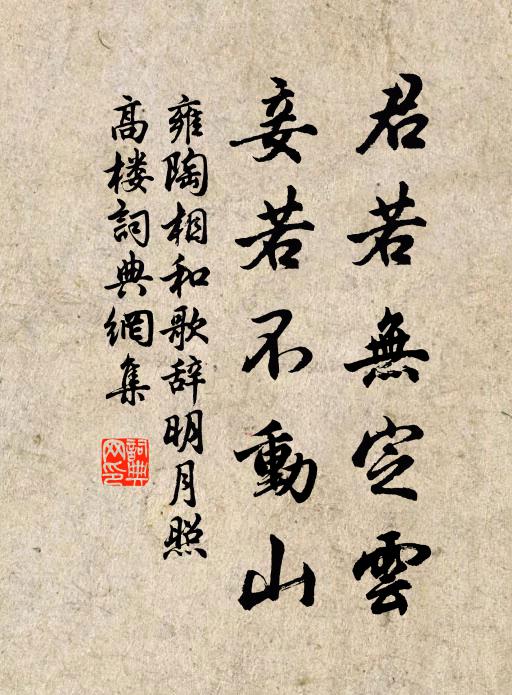 君若無定雲
妾若不動山
雍陶相和歌辞明月照
高楼詞典網集
詞典网印